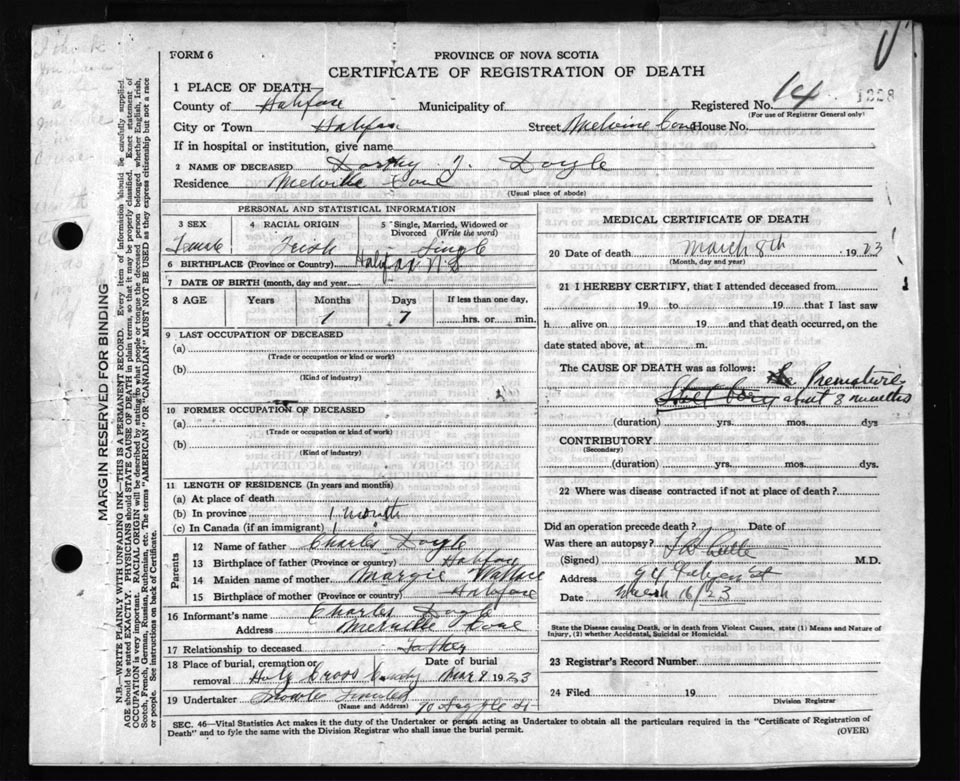 FORM 6
PROVINCE OF NOVA SCOTIA
CERTIFICATE OF REGISTRATION OF DEATH
1 PLACE OF DEATH
County of Halifax Municipality of Registered No. 14 1228
(For use of Registrar General only)
City or Town Halifax Street Melvine Cove House No.
If in hospital or institution, give name
2 NAME OF DECEASED Dorthy J. Doyle
Residence Melville Cove
(Usual place of abode)
PERSONAL AND STATISTICAL INFORMATION
3 SEX 4 RACIAL ORIGIN 5 Single, Married, Widowed or Divorced (Write the word)
Irish Single
6 BIRTHPLACE (Province or Country) Halifax N.S
7 DATE OF BIRTH (month, day and year)
8 AGE Years Months Days If less than one day,
1 7 hrs. or min.
9 LAST OCCUPATION OF DECEASED
(a)
(Trade or occupation or kind or work)
(b)
(Kind of industry)
10 FORMER OCCUPATION OF DECEASED
(a)
(Trade or occupation or kind of work)
(b)
(Kind of industry)
11 LENGTH OF RESIDENCE (In years and months)
(a) At place of death
(b) In province 1 month
(c) In Canada (if an immigrant) 1
Parents
12 Name of father Charles Doyle
13 Birthplace of father (Province or country) Halifax
14 Maiden name of mother Margie Wallace
15 Birthplace of mother (Province or country) Halifax
16 Informant's name Charles Doyle
Address Melville Cove
17 Relationship to deceased Father
18 Place of burial, cremation or removal Holy Cross Date of burial Mar 9 1923
19 Undertaker Snow 90 Argyle St
(Name and Address)
MEDICAL CERTIFICATE OF DEATH
20 Date of death March 8th 1923
(Month, day and year)
21 I HEREBY CERTIFY, that I attended deceased from
19 to 19 that I last saw
h alive on 19 and that death occurred, on
date stated above, at m.
The CAUSE OF DEATH was as follows: Premature
about 8 months
(duration) yrs. mos. dys
CONTRIBUTORY
(Secondary)
(duration) yrs. mos. dys.
22 Where was disease contracted if not at place of death?
Did an operation precede death? Date of
Was there an autopsy?
(Signed) M.D.
Address 94 St
Date March 16/23
State the Disease causing Death, or in death from Violent Causes, state (1) Means and Nature of Injury, (2) whether Accidental, Suicidal or Homicidal.
23 Registrar's Record Number
24 Filed 19
Division Registrar
SEC. 46—Vital Statistics Act makes it the duty of the Undertaker or person acting as Undertaker to obtain all the particulars required in the "Certificate of Registration of
Death" and to fyle the same with the Division Registrar who shall issue the burial permit.
(OVER)
MARGIN RESERVED FOR BINDING
N.B.—WRITE PLAINLY WITH UNFADING INK—THIS IS A PERMANENT RECORD. Every item of information should be carefully supplied
AGE should be stated EXACTLY. PHYSICIANS should STATE CAUSE OF DEATH in plain terms, so that it may be properly classified. Exact statement of
OCCUPATION is very important. RACIAL ORIGIN will be described by stating to what people or tongue the deceased person belonged whether English, Irish,
Scotch, French, German, Russian, Ruthenian, etc. The terms "AMERICAN" OR "CANADIAN" MUST NOT BE USED as they express citizenship but not a race
or people. See instructions on back of Certificate.